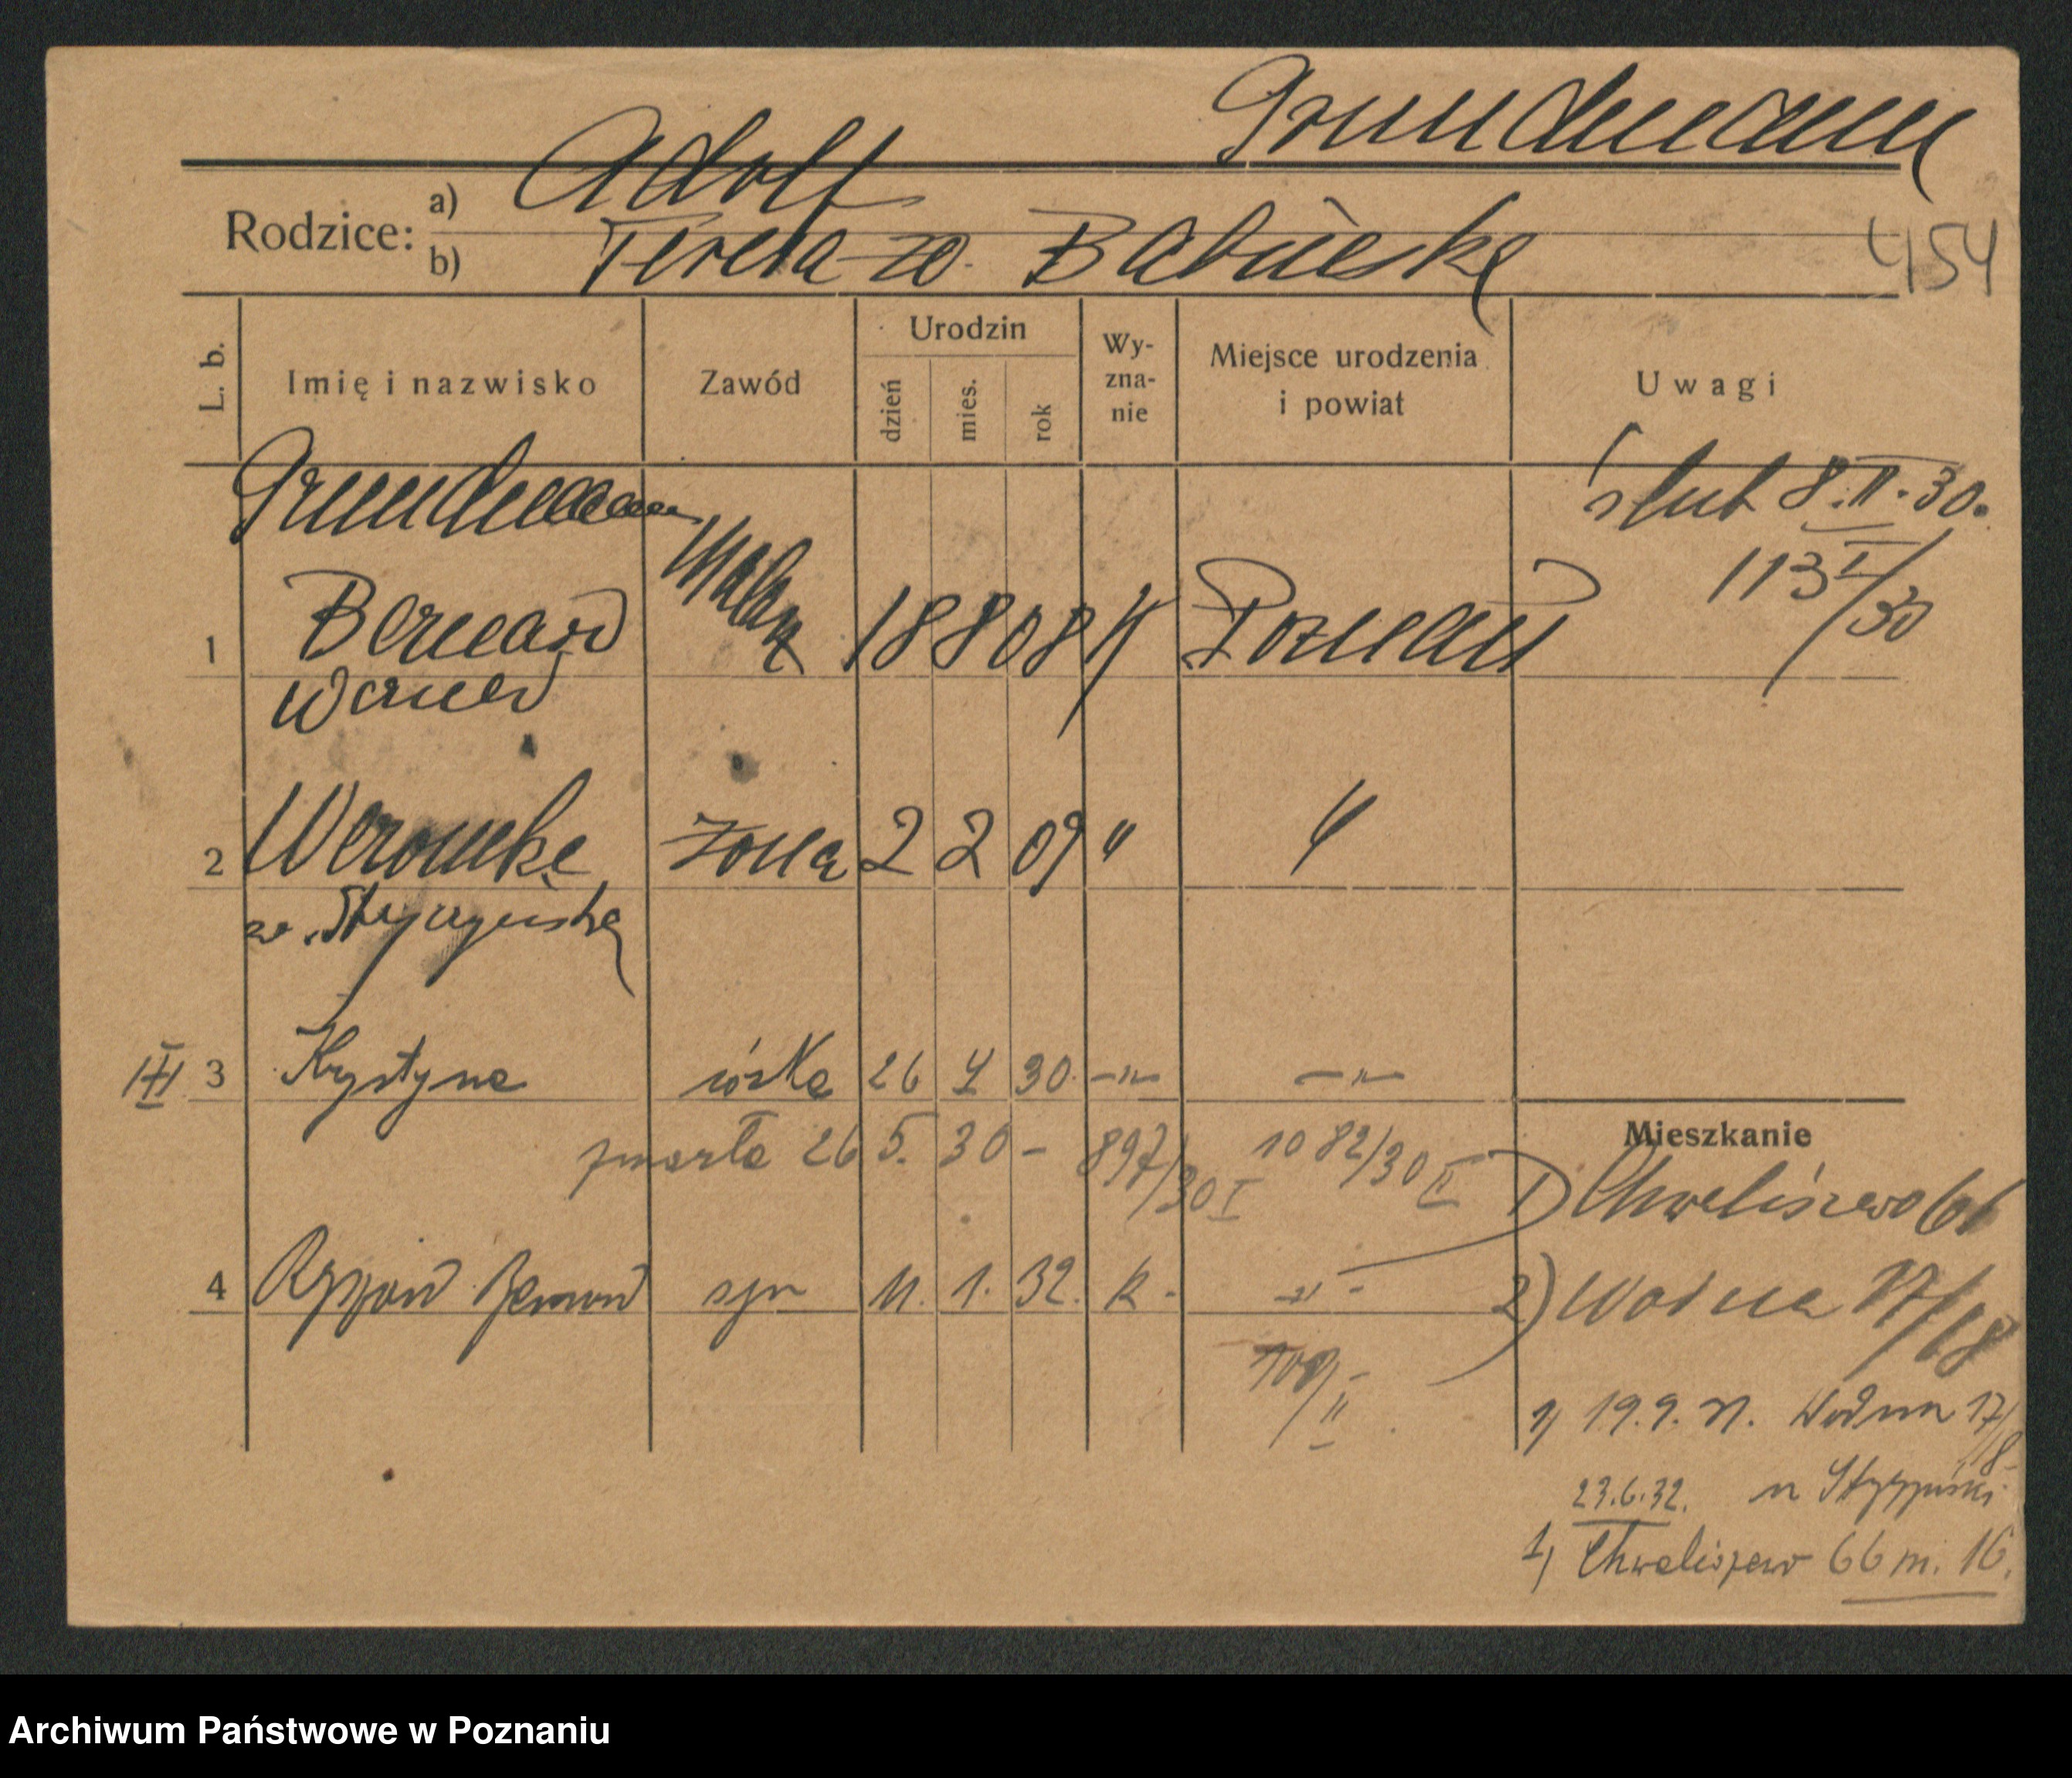 Grundmann
Rodzice: a) Adolf
b) Teresa zd. Babińska
454
L. b. Imię i nazwisko Zawód Urodzin dzień mies. rok Wy-zna-nie Miejsce urodzenia i powiat Uwagi
Grundmann ślub 8.II.30.
113 I/30
1 Bernard malarz 18 8 08 K Poznań
Werner
2 Weronika żona 2 2 09 " "
zd. Styczyńska
III 3 Krystyna córka 26 4 30 -"- -"-
zmarła 26 5. 30 - 897/30 I 1082/30 II
Mieszkanie
1) Chwaliszewo 66
4 Ryszard Bernard syn 11. 1. 32. k. -"-
2) Wodna 17/18
109/II
1) 19.9.31. Wodna 17/8
23.6.32. u Styczyński
1) Chwaliszewo 66 m. 16.
Archiwum Państwowe w Poznaniu